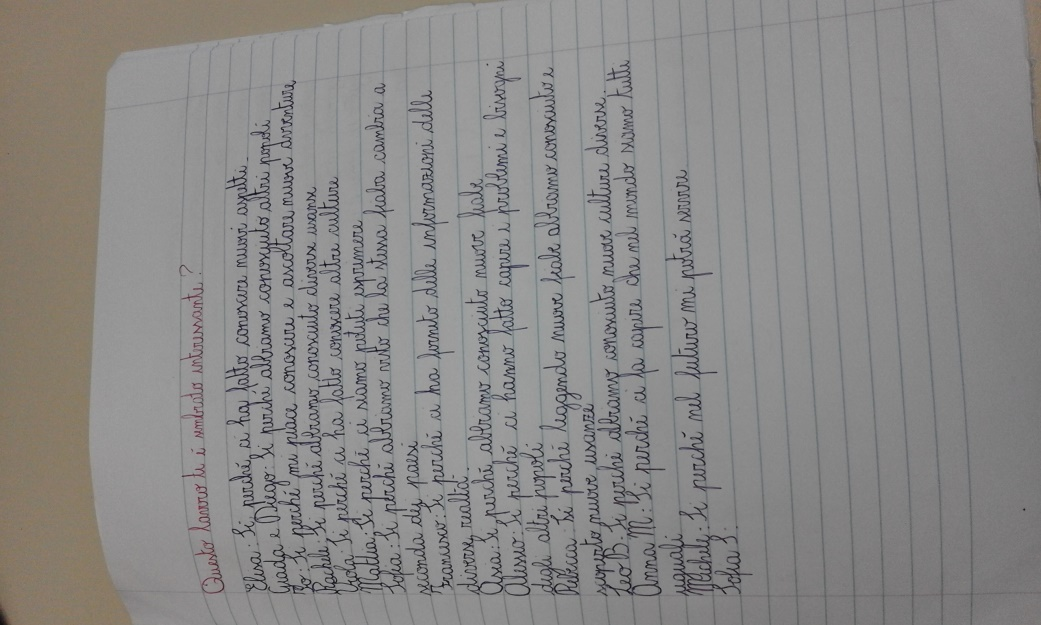 Questo lavoro ti è sembrato interessante?
Elisa: Sì, perché ci ha fatto conoscere nuovi aspetti.
Giada e Diego: Sì perché abbiamo conosciuto altri popoli
Io: Sì perché mi piace conoscere e ascoltare nuove avventure
Rachele: Sì perché abbiamo conosciuto diverse usanze
Sofia: Sì perché ci ha fatto conoscere altre culture
Mattia: Sì perché ci siamo potuti esprimere
Sofia: Sì perché abbiamo visto che la stessa fiaba cambia a
seconda dei paesi
Francesco: Sì perché ci ha fornito delle informazioni delle
diverse realtà.
Asia: Sì perché abbiamo conosciuto nuove fiabe
Alessio: Sì perché ci hanno fatto capire i problemi e bisogni
degli altri popoli
Rebecca: Sì perché leggendo nuove fiabe abbiamo conosciuto e
scoperto nuove usanze
Leo B: Sì perché abbiamo conosciuto nuove culture diverse
Anna M: Sì perché ci fa capire che nel mondo siamo tutti
uguali
Michele: Sì perché nel futuro mi potrà servire
Sofia S: